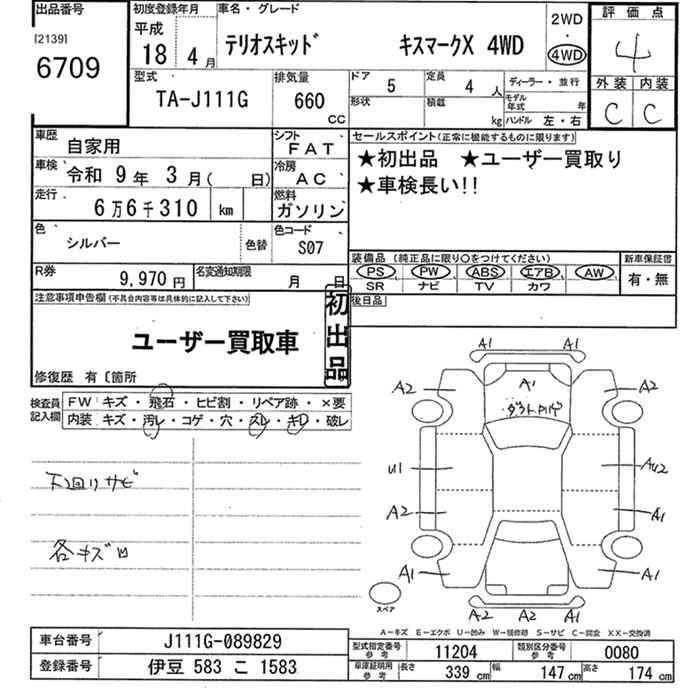 出品番号
[2139]
6709
初度登録年月
平成
18年 4月
車名・グレード
テリオスキッド キスマークX 4WD
2WD
・
4WD
評価点
4
外装 内装
C C
型式
TA-J111G
排気量
660
CC
ドア 5
定員 4 人
形状
積載 kg
ディーラー・並行
モデル年式 年
ハンドル 左・右
車歴 自家用
シフト FAT
車検 令和 9年 3月( 日)
冷房 AC
走行 6万6千310 km
燃料 ガソリン
色 シルバー 色替
色コード S07
R券 9,970円
名変通知期限 月 日
セールスポイント(正常に機能するものに限ります)
★初出品 ★ユーザー買取り
★車検長い!!
装備品 (純正品に限り○をつけてください)
PS PW ABS エアB AW
SR ナビ TV カワ
新車保証書
有・無
後日品
注意事項申告欄(不具合内容等は具体的に記入して下さい)
ユーザー買取車
初出品
修復歴 有〔箇所
検査員記入欄
FW キズ・飛石・ヒビ割・リペア跡・×要
内装 キズ・汚レ・コゲ・穴・スレ・キレ・破レ
下回りサビ
各キズ凹
A1 A1
A2 A1 A2
U1 AU2
A2 A1
A1 A1
A1 A2 A1
スペア
A―キズ E―エクボ U―凹み W―補修跡 S―サビ C―腐食 XX―交換済
車台番号 J111G-089829
登録番号 伊豆 583 こ 1583
型式指定番号 参考 11204
類別区分番号 参考 0080
車庫証明用 参考 長さ 339 cm 幅 147 cm 高さ 174 cm